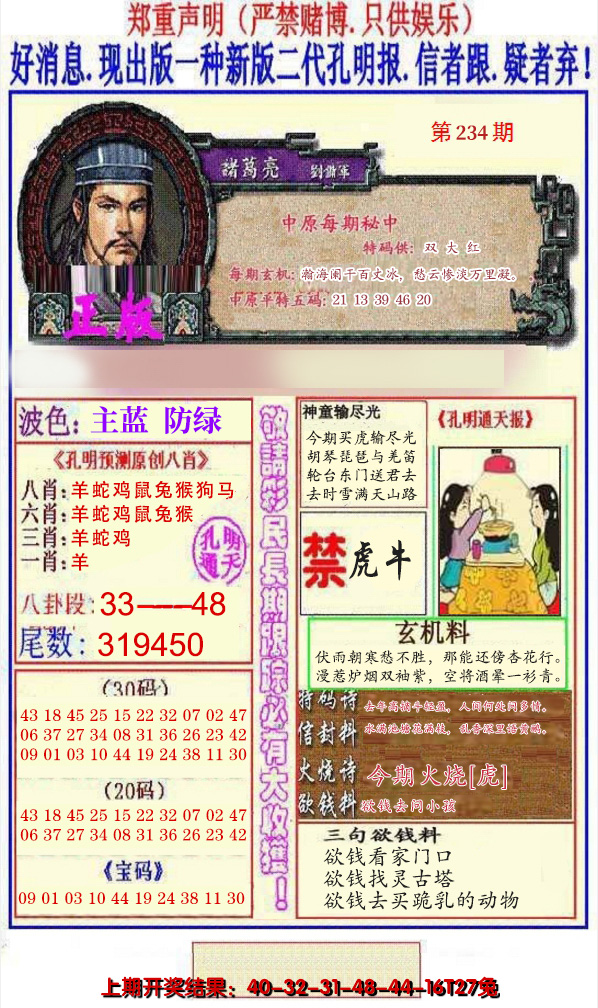 郑重声明（严禁赌博.只供娱乐）
好消息.现出版一种新版二代孔明报.信者跟.疑者弃！
第234期
諸葛亮 劉備軍
中原每期秘中
特码供：双大红
每期玄机：瀚海阑干百丈冰，愁云惨淡万里凝。
中原平特五码：21 13 39 46 20
正版
波色：主蓝 防绿
《孔明预测原创八肖》
八肖：羊蛇鸡鼠兔猴狗马
六肖：羊蛇鸡鼠兔猴
三肖：羊蛇鸡
一肖：羊
孔明
通天
八卦段：33——48
尾数：319450
（30码）
43 18 45 25 15 22 32 07 02 47
06 37 27 34 08 31 36 26 23 42
09 01 03 10 44 19 24 38 11 30
（20码）
43 18 45 25 15 22 32 07 02 47
06 37 27 34 08 31 36 26 23 42
《宝码》
09 01 03 10 44 19 24 38 11 30
敬請彩民長期跟踪必有大收獲！
神童输尽光
今期买虎输尽光
胡琴琵琶与羌笛
轮台东门送君去
去时雪满天山路
《孔明通天报》
禁 虎牛
玄机料
伏雨朝寒愁不胜，那能还傍杏花行。
漫惹炉烟双袖紫，空将酒晕一衫青。
特码诗 去年高摘斗轻盈，人间何处问多情。
信封料 水满池塘花满枝，乱香深里语黄鹂。
火烧诗 今期火烧[虎]
欲钱料 欲钱去问小孩
三句欲钱料
欲钱看家门口
欲钱找灵古塔
欲钱去买跪乳的动物
上期开奖结果：40-32-31-48-44-16T27兔